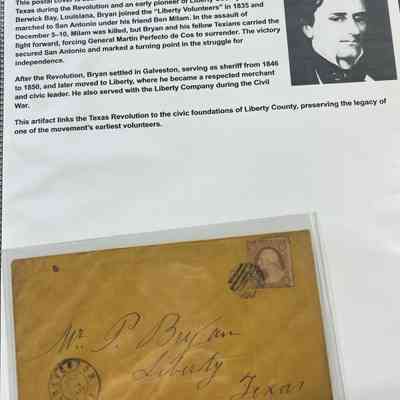 This postal cover is
Texas during the Revolution and an early pioneer of Liberty
Berwick Bay, Louisiana, Bryan joined the "Liberty Volunteers" in 1835 and
marched to San Antonio under his friend Ben Milam. In the assault of
December 5–10, Milam was killed, but Bryan and his fellow Texians carried the
fight forward, forcing General Martin Perfecto de Cos to surrender. The victory
secured San Antonio and marked a turning point in the struggle for
independence.
After the Revolution, Bryan settled in Galveston, serving as sheriff from 1846
to 1850, and later moved to Liberty, where he became a respected merchant
and civic leader. He also served with the Liberty Company during the Civil
War.
This artifact links the Texas Revolution to the civic foundations of Liberty County, preserving the legacy of
one of the movement's earliest volunteers.
Mr P. Bryan
Liberty
Texas